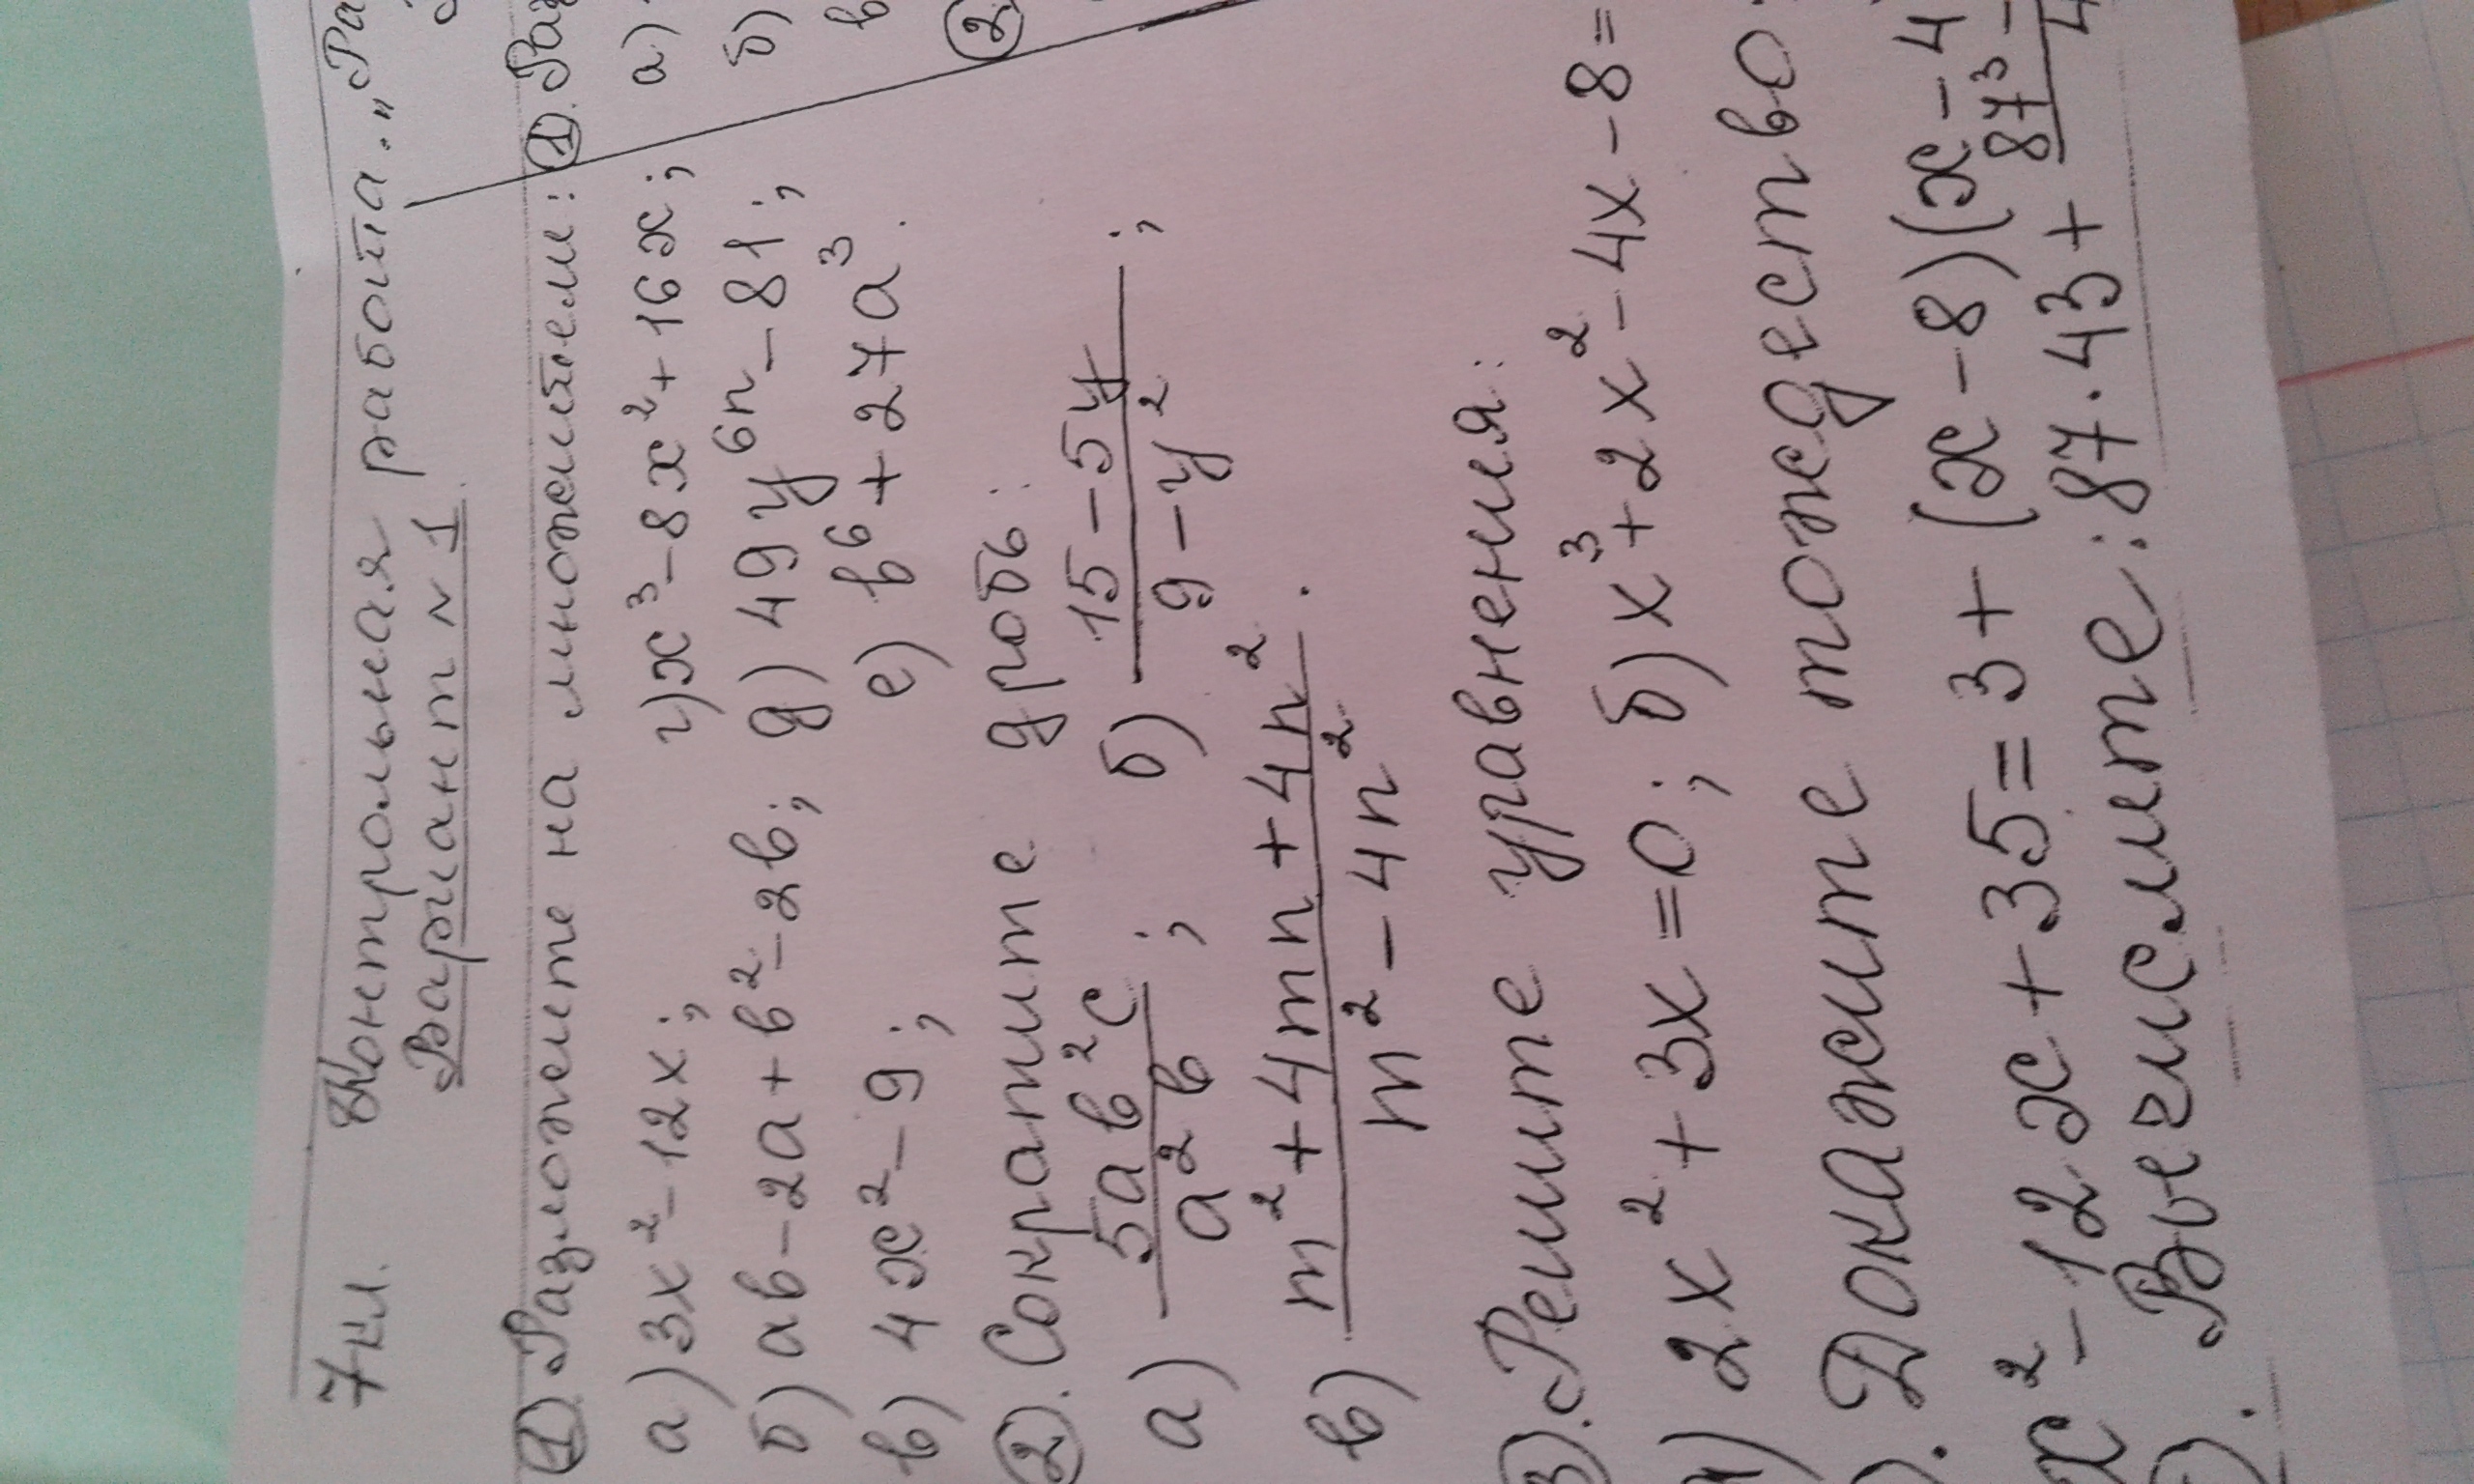 7кл. Контрольная работа. „Ра
Вариант N 1
① Разложите на множители:
а) 3x² - 12x; г) x³ - 8x² + 16x;
б) ab - 2a + b² - 2b; д) 49y⁶ⁿ - 81;
в) 4x² - 9; е) b⁶ + 27a³.
②. Сократите дробь:
а) 5ab²c / a²b; б) 15 - 5y / 9 - y²;
в) m² + 4mn + 4n² / m² - 4n².
3). Решите уравнения:
2x² + 3x = 0; б) x³ + 2x² - 4x - 8 =
). Докажите тождество:
x² - 12x + 35 = 3 + (x - 8)(x - 4
). Вычислите: 87 · 43 + 87³ - / 4
① Раз
а)
б)
в
②